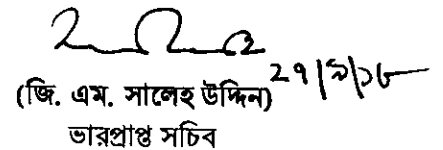 ২৭/৯/১৮
(জি. এম. সালেহ উদ্দিন)
ভারপ্রাপ্ত সচিব